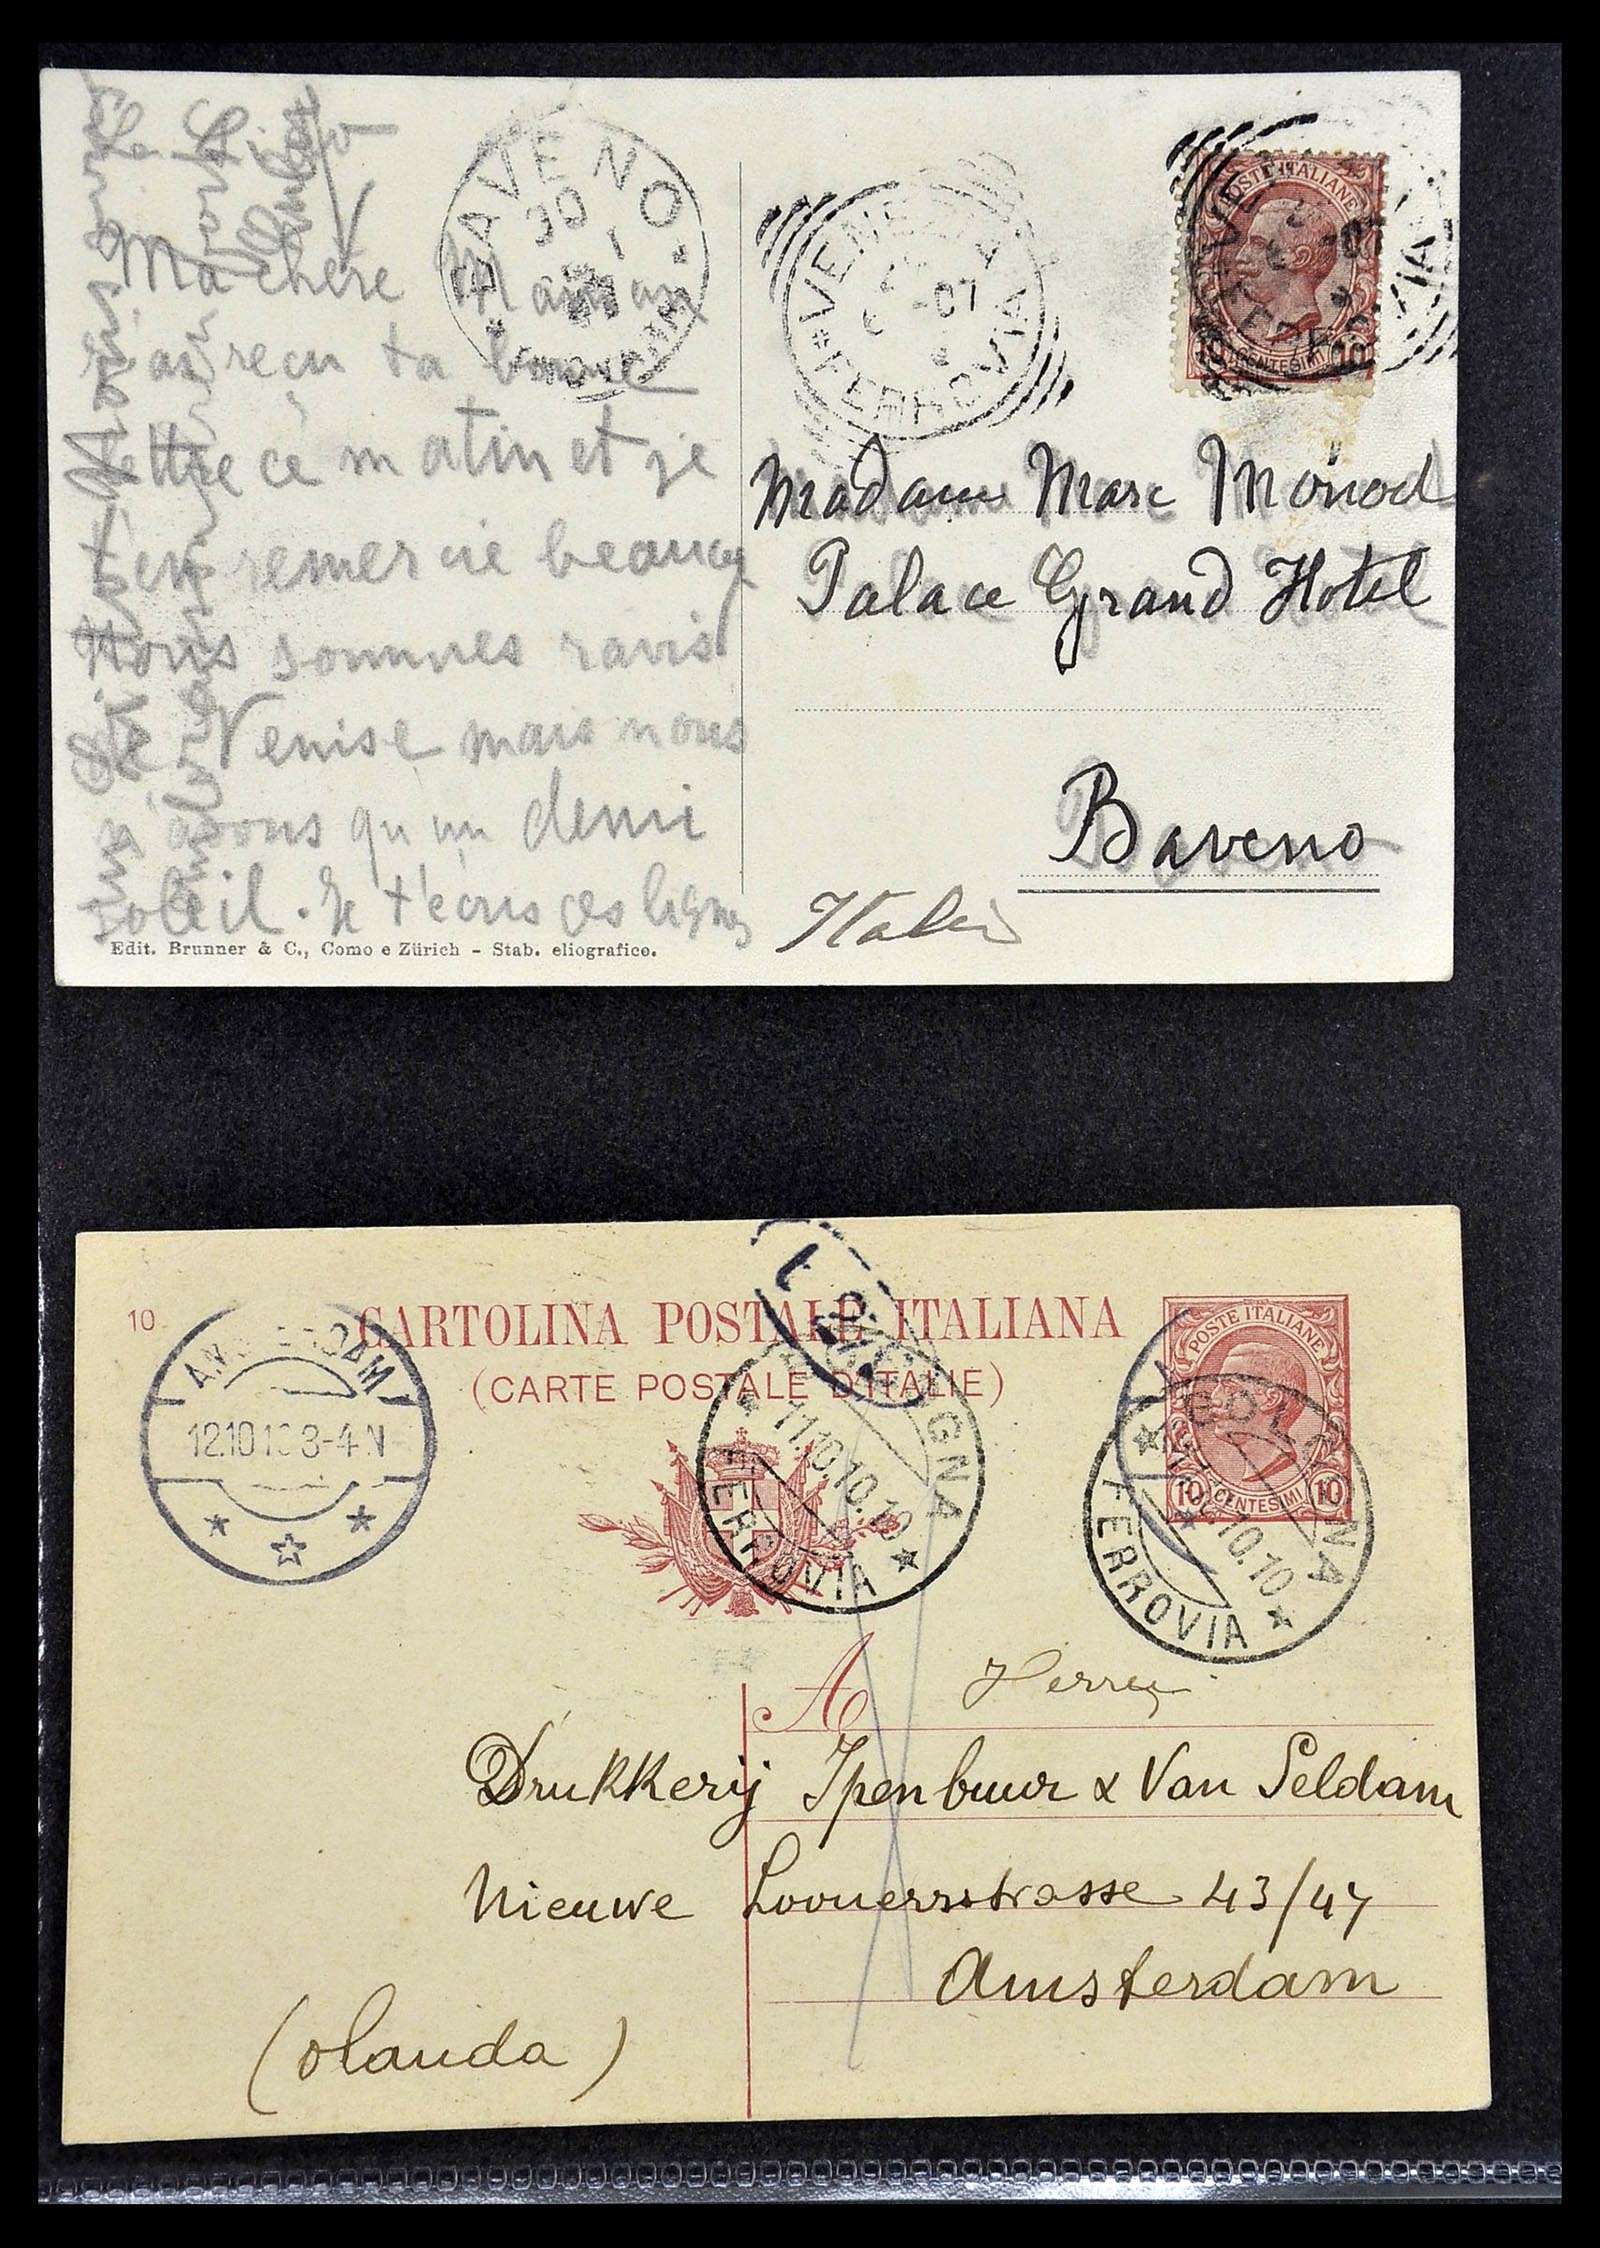 BAVENO
VENEZIA
-07
FERROVIA
POSTE ITALIANE
CENTESIMI 10
Ma chère Maman
J'ai reçu ta bonne
lettre ce matin et je
t'en remercie beaucoup
Nous sommes ravis
de Venise mais nous
n'avons qu'un demi
soleil. Je t'écris ces lignes
Edit. Brunner & C., Como e Zürich - Stab. eliografico.
Madame Marc Monod
Palace Grand Hotel
Baveno
Italie
10
CARTOLINA POSTALE ITALIANA
(CARTE POSTALE D'ITALIE)
12.10.10 3-4 N
BOLOGNA
11.10.10.19
FERROVIA
POSTE ITALIANE
10 CENTESIMI 10
BOLOGNA
10.10
FERROVIA
A
Herren
Drukkerij Ipenbuur & Van Seldam
Nieuwe Looyerrstrasse 43/47
Amsterdam
(Olanda)